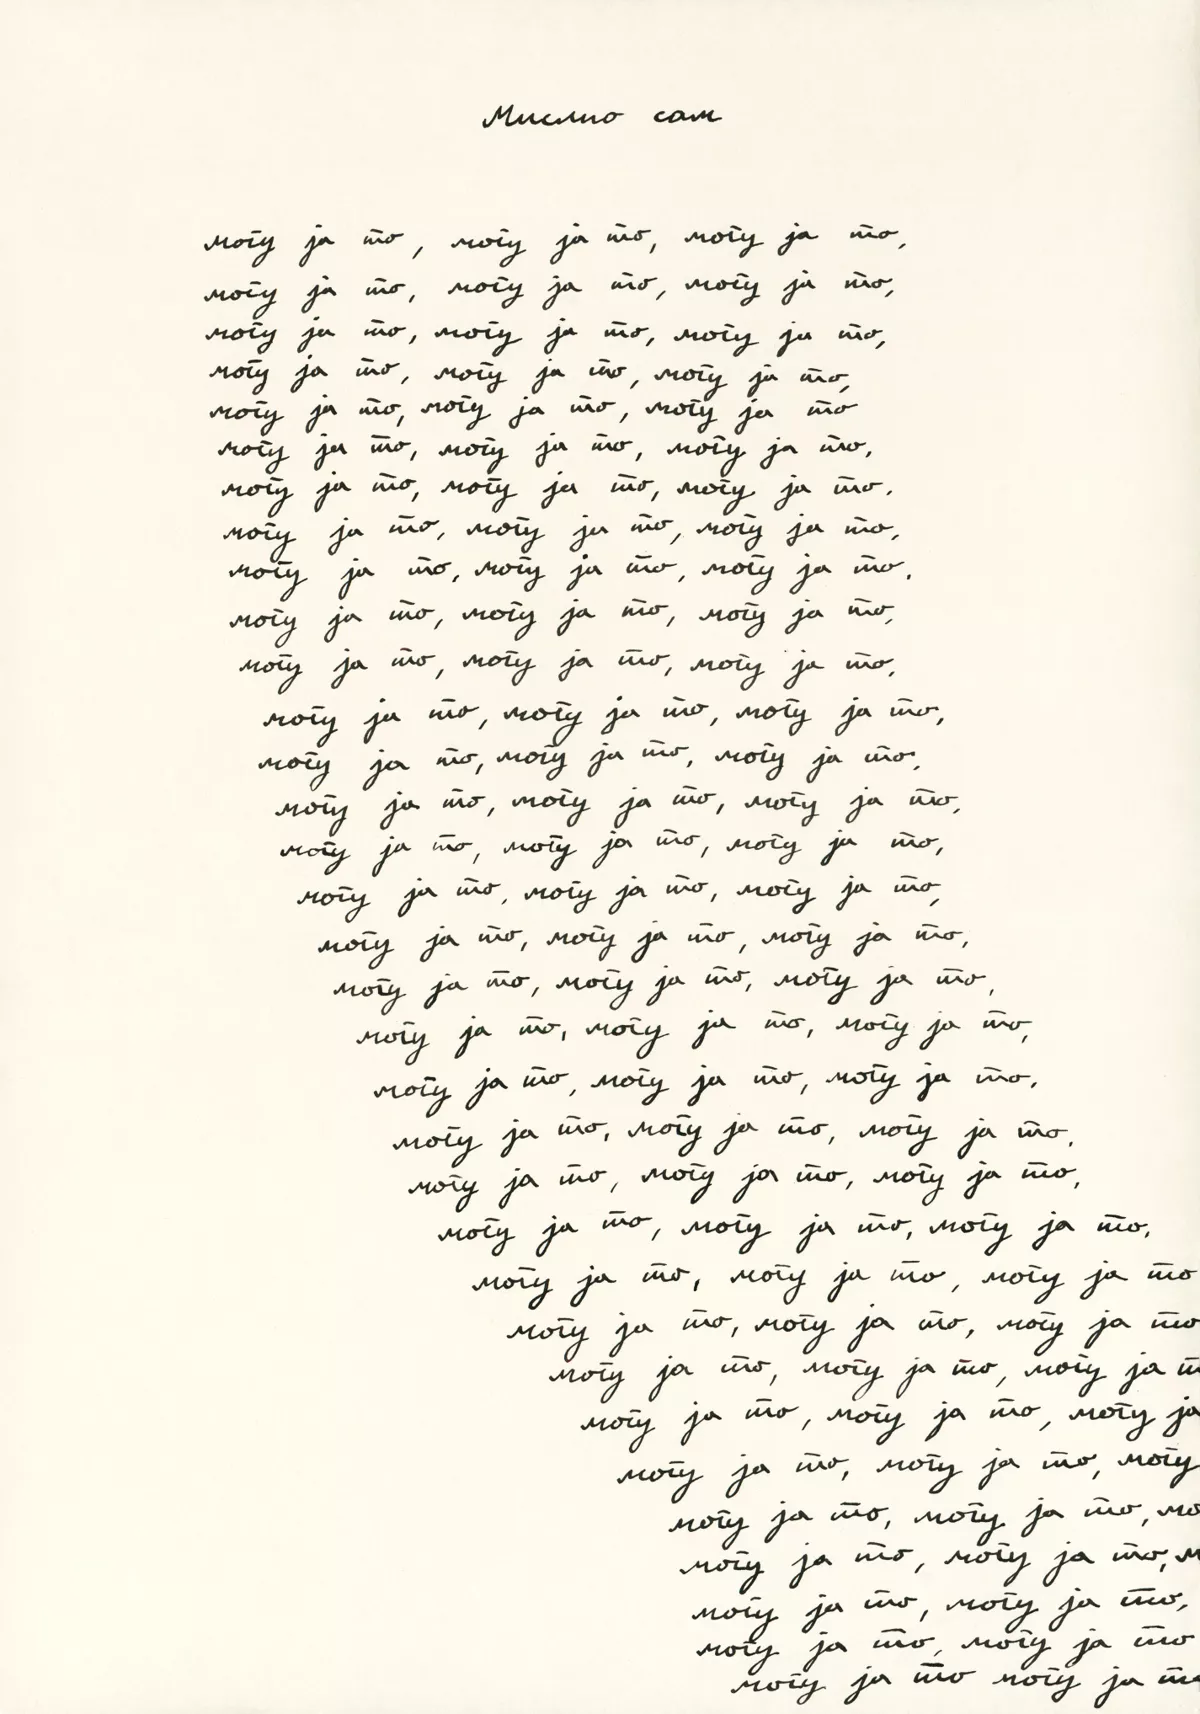 Мислио сам
могу ја то, могу ја то, могу ја то,
могу ја то, могу ја то, могу ја то,
могу ја то, могу ја то, могу ја то,
могу ја то, могу ја то, могу ја то,
могу ја то, могу ја то, могу ја то
могу ја то, могу ја то, могу ја то,
могу ја то, могу ја то, могу ја то.
могу ја то, могу ја то, могу ја то,
могу ја то, могу ја то, могу ја то,
могу ја то, могу ја то, могу ја то,
могу ја то, могу ја то, могу ја то,
могу ја то, могу ја то, могу ја то,
могу ја то, могу ја то, могу ја то,
могу ја то, могу ја то, могу ја то,
могу ја то, могу ја то, могу ја то,
могу ја то, могу ја то, могу ја то,
могу ја то, могу ја то, могу ја то,
могу ја то, могу ја то, могу ја то,
могу ја то, могу ја то, могу ја то,
могу ја то, могу ја то, могу ја то,
могу ја то, могу ја то, могу ја то,
могу ја то, могу ја то, могу ја то,
могу ја то, могу ја то, могу ја то,
могу ја то, могу ја то, могу ја то
могу ја то, могу ја то, могу ја то
могу ја то, могу ја то, могу ја т
могу ја то, могу ја то, могу ја
могу ја то, могу ја то, могу
могу ја то, могу ја то, мо
могу ја то, могу ја то, м
могу ја то, могу ја то,
могу ја то, могу ја то
могу ја то могу ја то